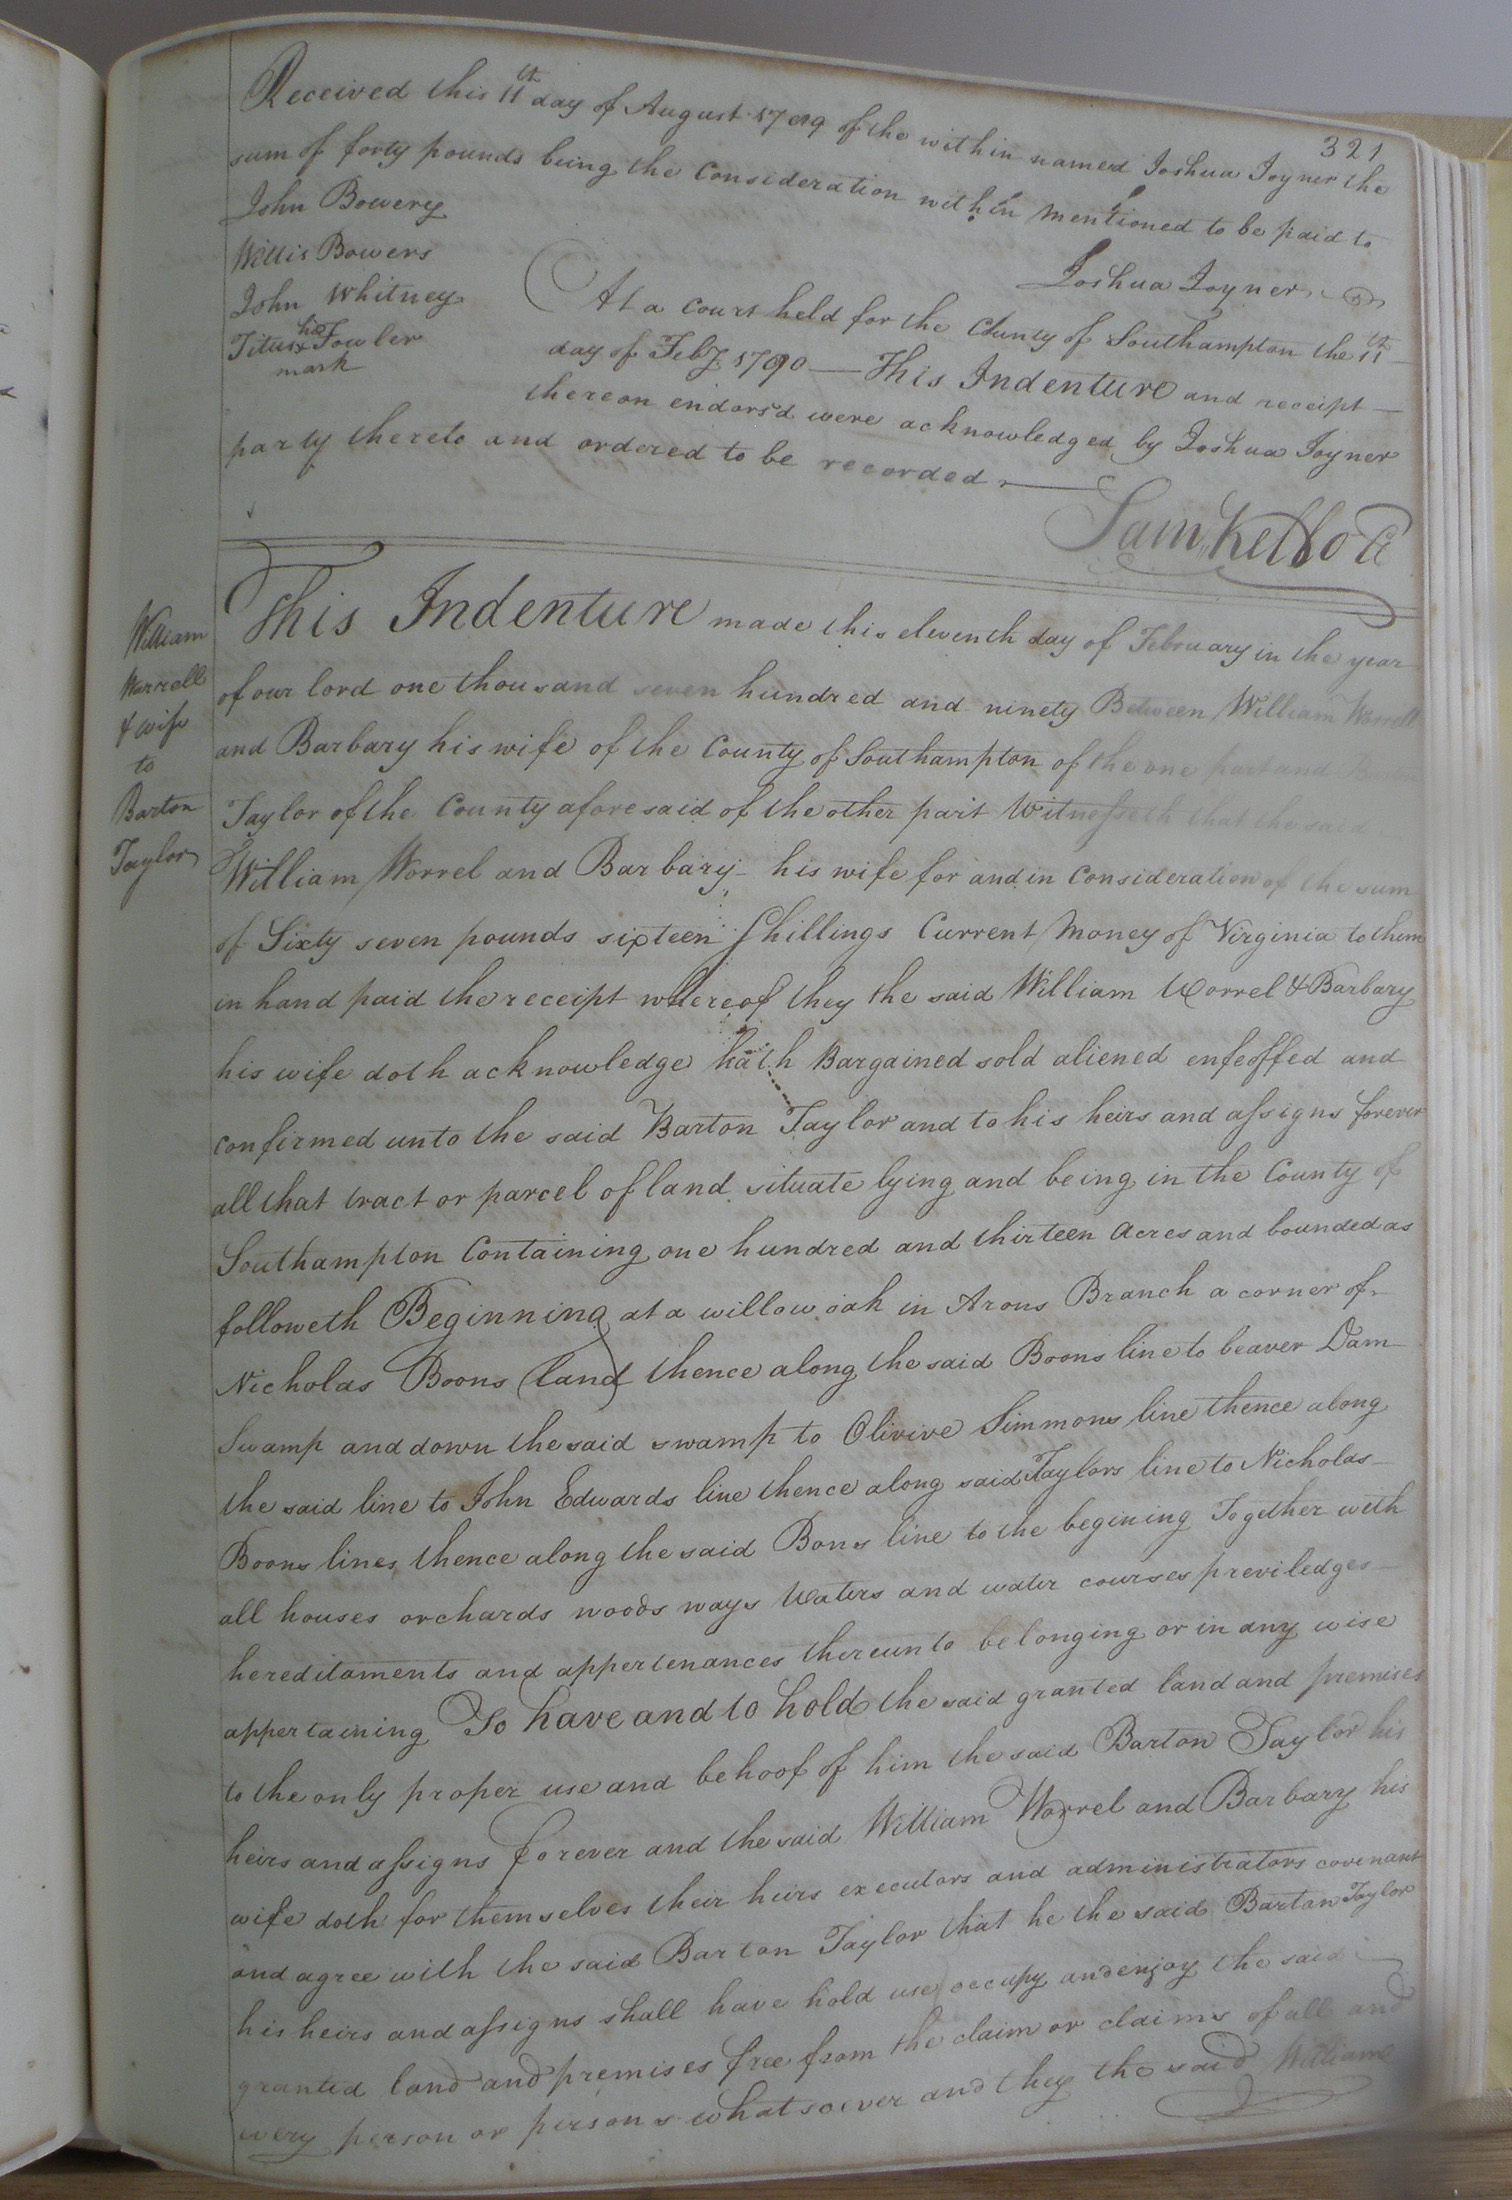 321
Received this 11th day of August 1789 of the within named Joshua Joyner the
sum of forty pounds being the Consideration within mentioned to be paid to
John Bowery
Joshua Joyner
Willis Bowers
John Whitney
Titus his x Fowler
mark
At a Court held for the County of Southampton the 11th
day of Feby 1790 — This Indenture and receipt —
thereon endors'd were acknowledged by Joshua Joyner
party thereto and ordered to be recorded. —
Sam. Kello C
William
Worrell
& wife
to
Barton
Taylor
This Indenture made this eleventh day of February in the year
of our lord one thousand seven hundred and ninety Between William Worrell
and Barbary his wife of the County of Southampton of the one part and
Taylor of the County aforesaid of the other part Witnesseth that the said
William Worrel and Barbary his wife for and in Consideration of the sum
of Sixty seven pounds sixteen Shillings Current Money of Virginia to them
in hand paid the receipt whereof they the said William Worrel & Barbary
his wife doth acknowledge hath Bargained sold aliened enfeoffed and
confirmed unto the said Barton Taylor and to his heirs and assigns forever
all that tract or parcel of land situate lying and being in the County of
Southampton Containing one hundred and thirteen acres and bounded as
followeth Beginning at a willow oak in Arons Branch a corner of
Nicholas Boons land thence along the said Boons line to beaver Dam
Swamp and down the said swamp to Olivive Simmons line thence along
the said line to John Edwards line thence along said Taylors line to Nicholas
Boons lines thence along the said Bons line to the begining Together with
all houses orchards woods ways Waters and water courses previledges
hereditaments and appertenances thereunto belonging or in any wise
appertaining To have and to hold the said granted land and premises
to the only proper use and behoof of him the said Barton Taylor his
heirs and assigns forever and the said William Worrel and Barbary his
wife doth for themselves their heirs executors and administrators covenant
and agree with the said Barton Taylor that he the said Barton Taylor
his heirs and assigns shall have hold use occupy and enjoy the said
granted land and premises free from the claim or claims of all and
every person or persons whatsoever and they the said William